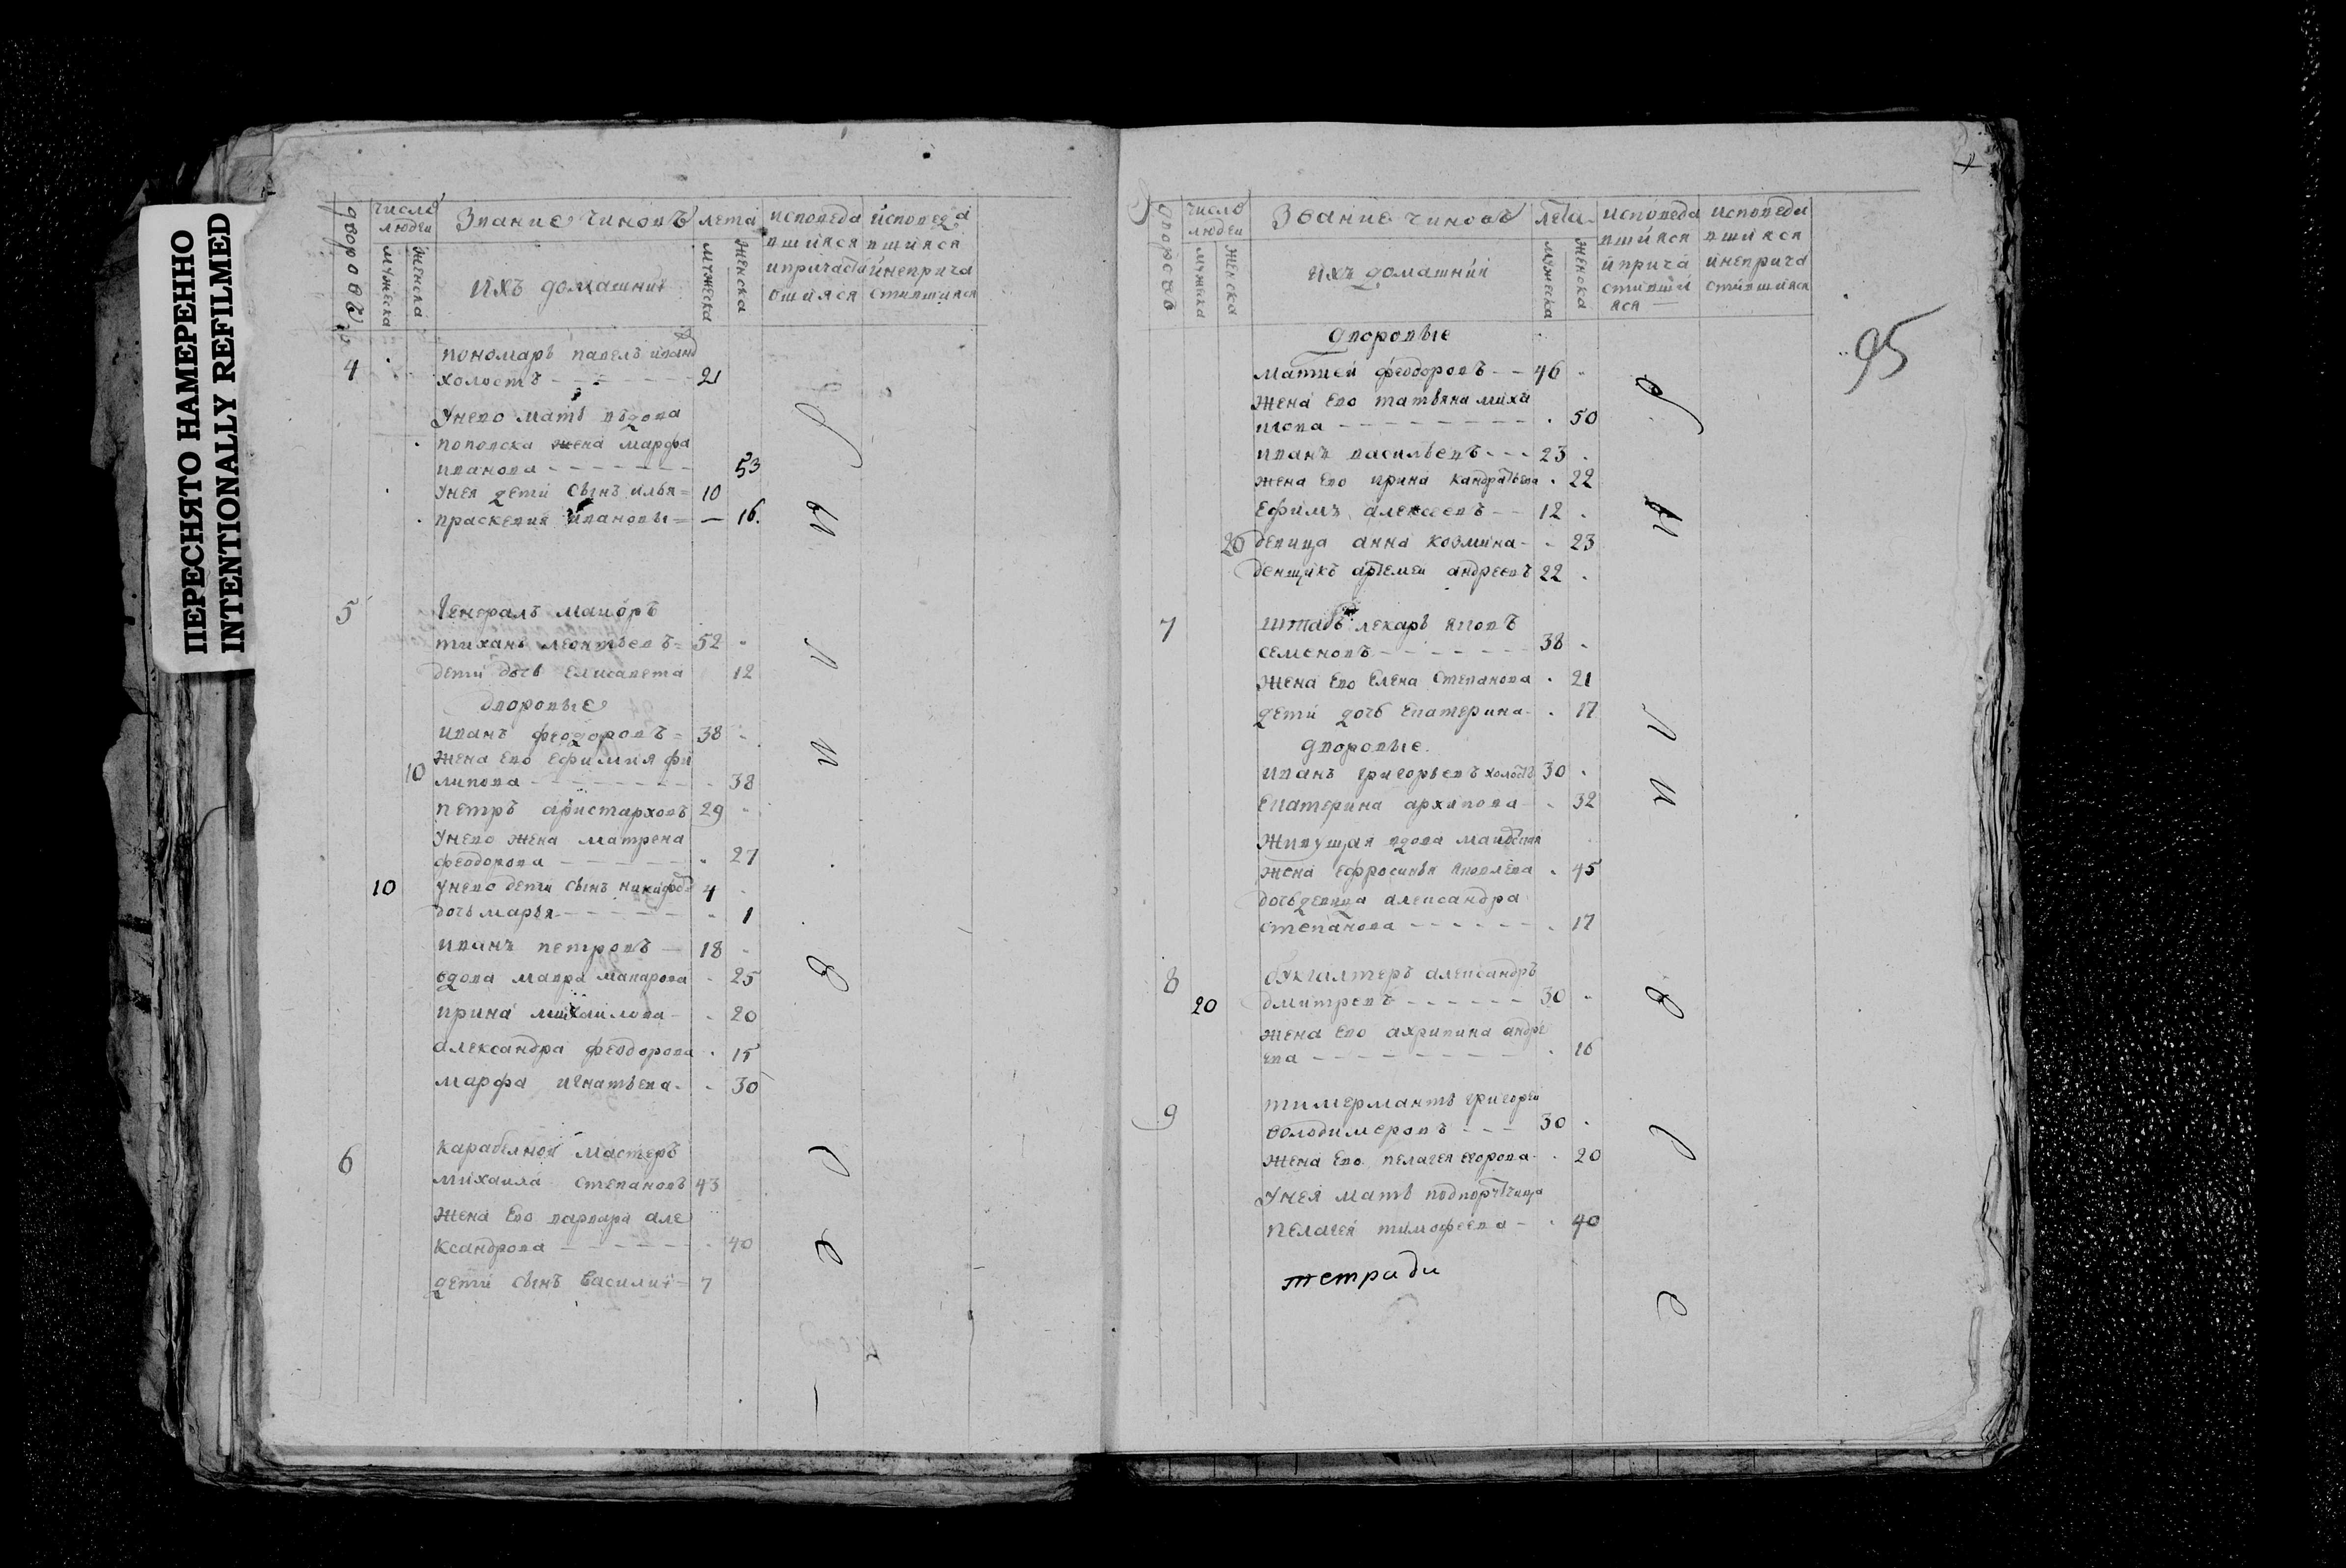 ПЕРЕСНЯТО НАМЕРЕННО
INTENTIONALLY REFILMED
дворовъ
число людеи
мужеска
женска
Звание чиновъ
ихъ домашния
лета
мужеска
женска
исповеда
вшияся
ипричасти
вшияся
исповеда
вшияся
инеприча
стившияся
4
пономаръ павелъ иванв
холостъ 21
Унево мать вдова
поповска жена марфа
иванова 53
Унея дети сынъ илья 10
праскевия ивановы 16
5
Генералъ маиоръ
тиханъ леонтьевъ 52
дети дочь елисавета 12
дворовые
иванъ феодоровъ 38
жена ево ефимия фи
10 липова 38
петръ аристарховъ 29
Унево жена матрена
феодорова 27
10 унево дети сынъ никифоръ 4
дочь марья 1
иванъ петровъ 18
вдова мавра макарова 25
ирина михаилова 20
александра феодорова 15
марфа игнатьева 30
6
карабелнои мастеръ
михаила степановъ 43
жена ево варвара але
ксандрова 40
дети сынъ василии 7
дворовъ
число людеи
мужеска
женска
Звание чиновъ
ихъ домашнии
лета
мужеска
женска
исповеда
вшияся
иприча
стивши
яся
исповеда
вшияся
инеприча
стившияся
95
дворовые
матвеи феодоровъ 46
жена ево татьяна миха
илова 50
иванъ васильевъ 23
жена ево ирина кандратьева 22
ефимъ алексеевъ 12
20 девица анна козмина 23
денщикъ артемеи андреевъ 22
7
штабъ лекаръ яковъ
семеновъ 38
жена ево елена степанова 21
дети дочь екатерина 17
дворовые
иванъ григорьевъ холостъ 30
екатерина архипова 32
живущая вдова
жена ефросинья яковлева 45
дочь девица александра
степанова 17
8
бухгалтеръ александръ
20 дмитревъ 30
жена ево ахрипина андре
ева 16
9
тимерманъ григореи
володимеровъ 30
жена ево пелагея егорова 20
Унея мать
пелагея тимофеева 40
тетради